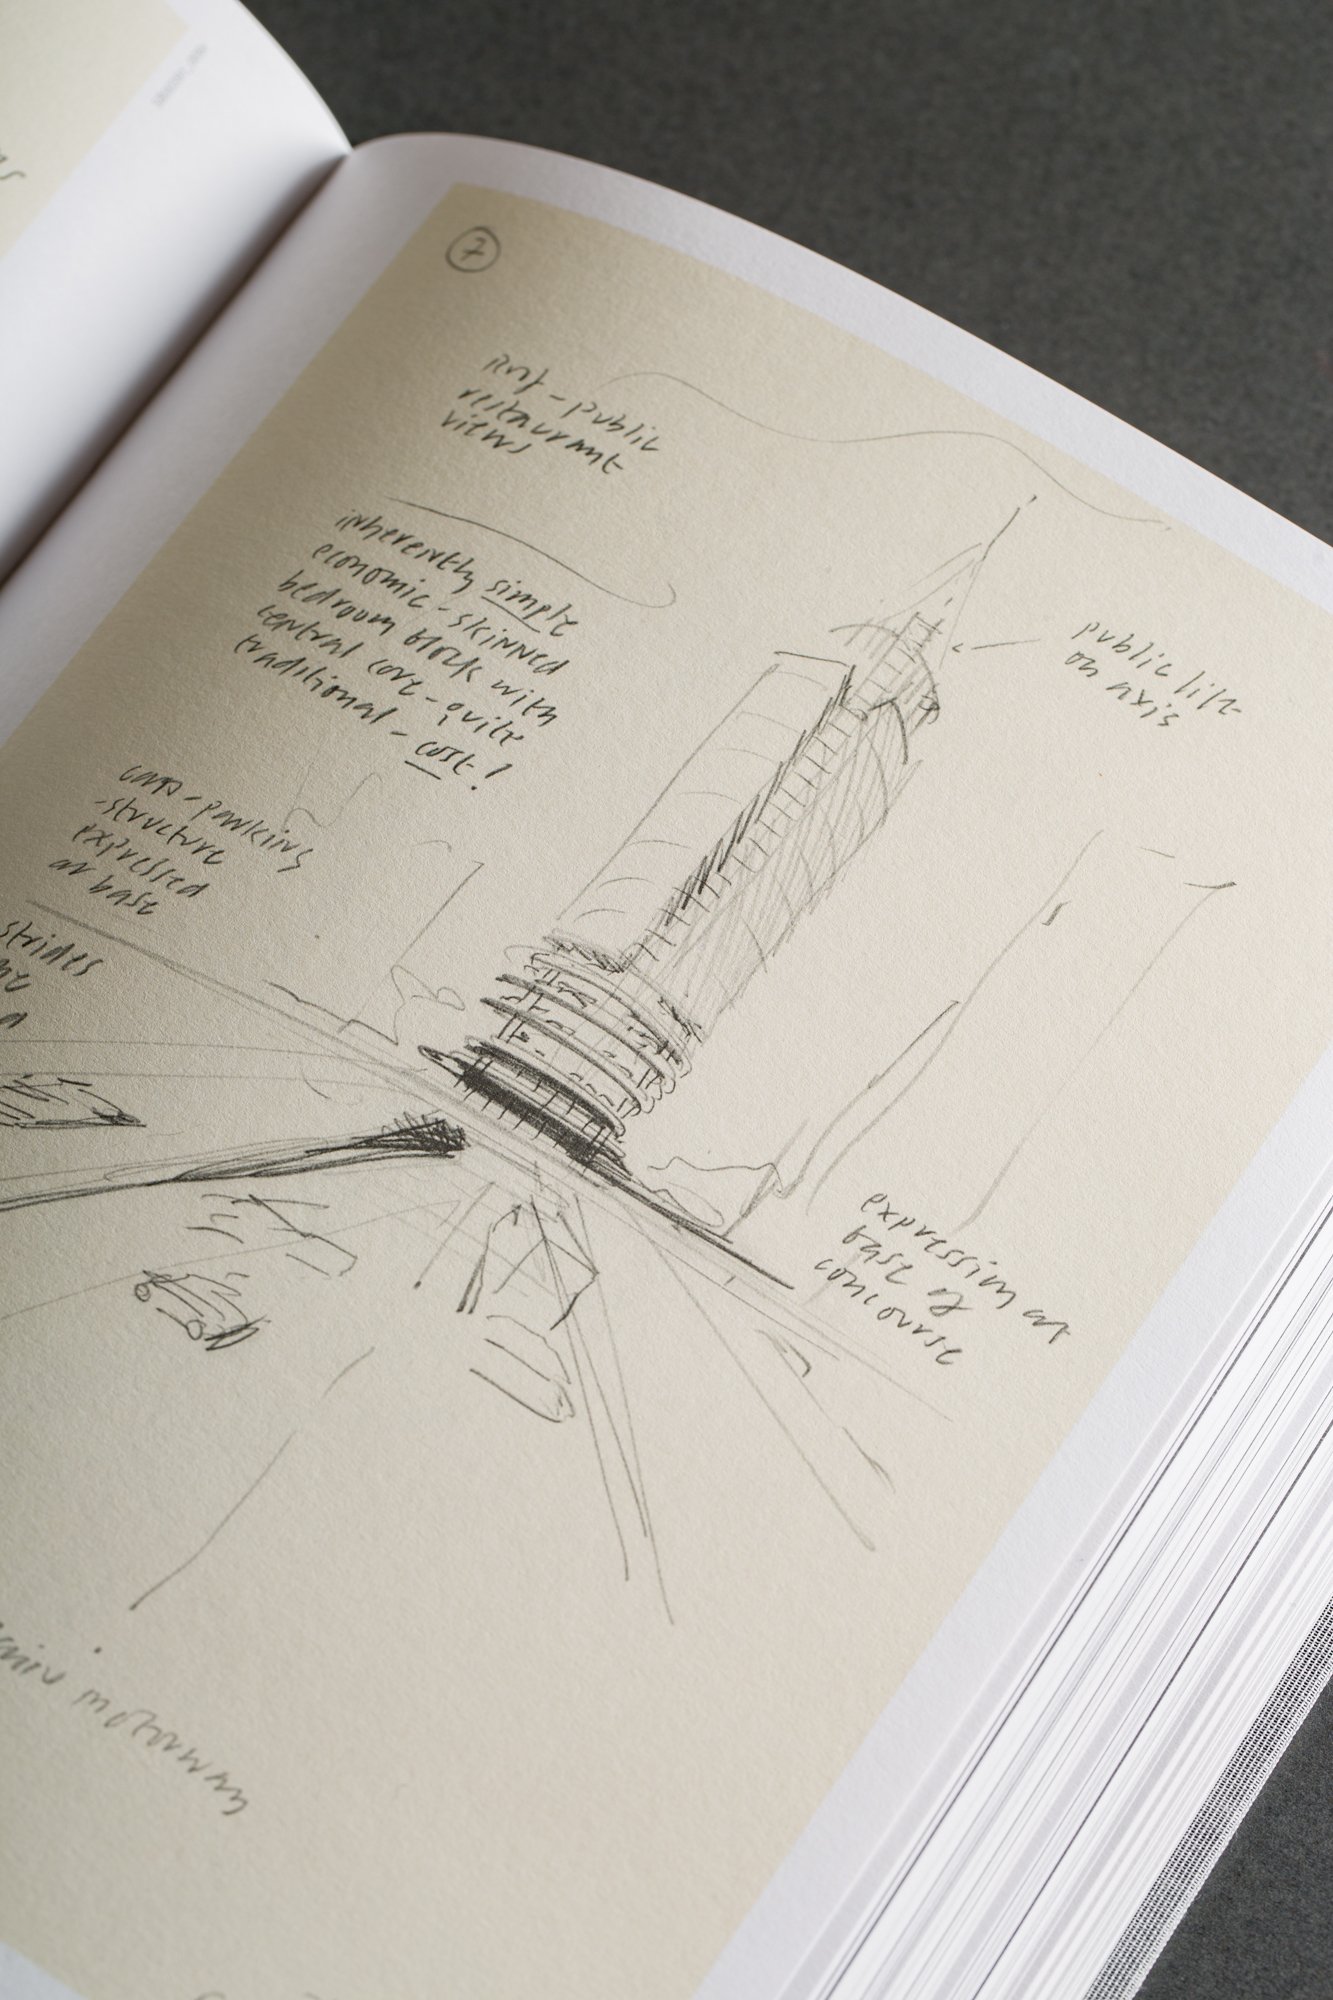 7
roof - public
restaurant
views
inherently simple
economic - skinned
bedroom block with
central core - quite
traditional - cost!
public lift
on axis
cars - parking
- structure
expressed
at base
strides
expression at
base of
concourse
motorway